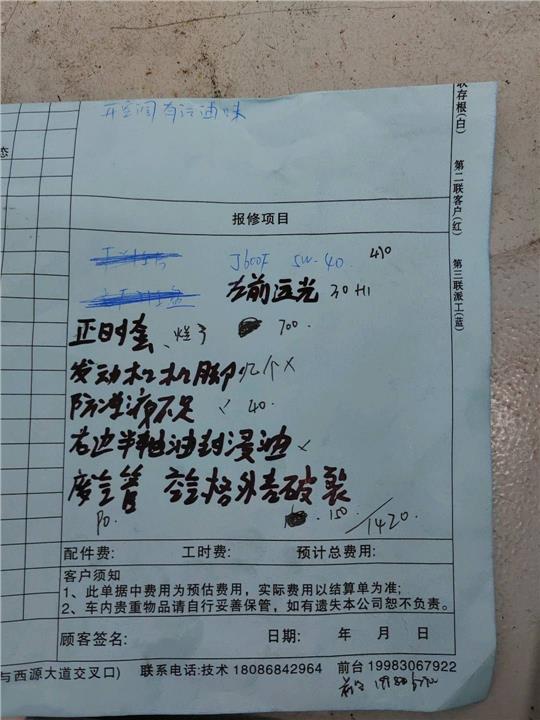 开空调有汽油味
收存根(白)
第二联客户(红)
第三联派工(蓝)
态
报修项目
J600F 5W-40 410
左前远光 30 H1
正时套、烂了 700.
发动机机脚 几个 ×
防冻液不足 ✓ 40.
右边半轴油封浸油 ✓
废气管 空气格外壳破裂
150. 1420.
配件费: 工时费: 预计总费用:
客户须知
1、此单据中费用为预估费用，实际费用以结算单为准;
2、车内贵重物品请自行妥善保管，如有遗失本公司恕不负责。
顾客签名: 日期: 年 月 日
与西源大道交叉口) 联系电话:技术 18086842964 前台 19983067922